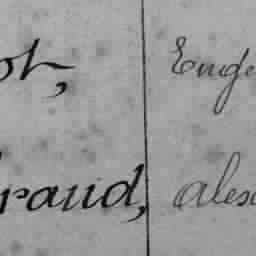 ot, Euge
raud, alex